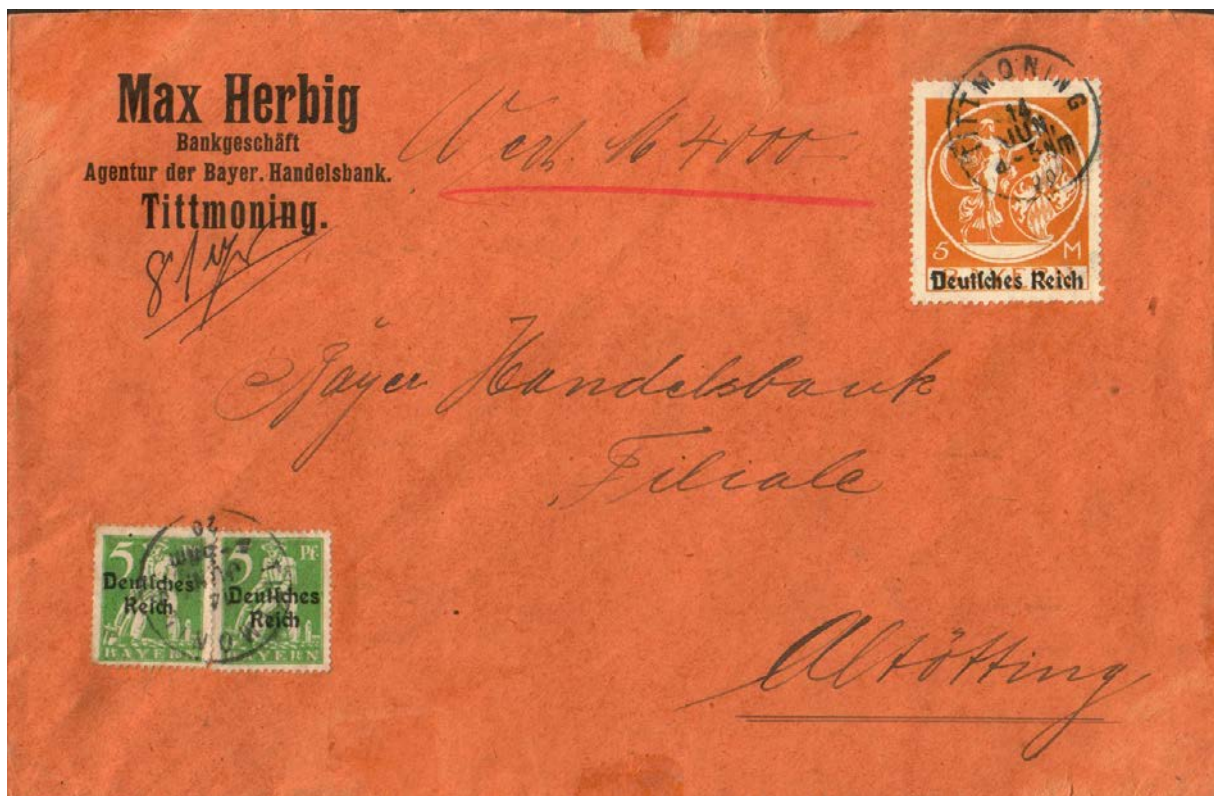 Max Herbig
Bankgeschäft
Agentur der Bayer. Handelsbank.
Tittmoning.
Wert M 4000
TITTMONING
14
JUN
5 M
BAYERN
Deutſches Reich
Bayer Handelsbank
Filiale
5 5 Pf
Deutſches Deutſches
Reich Reich
BAYERN BAYERN
20
Altötting